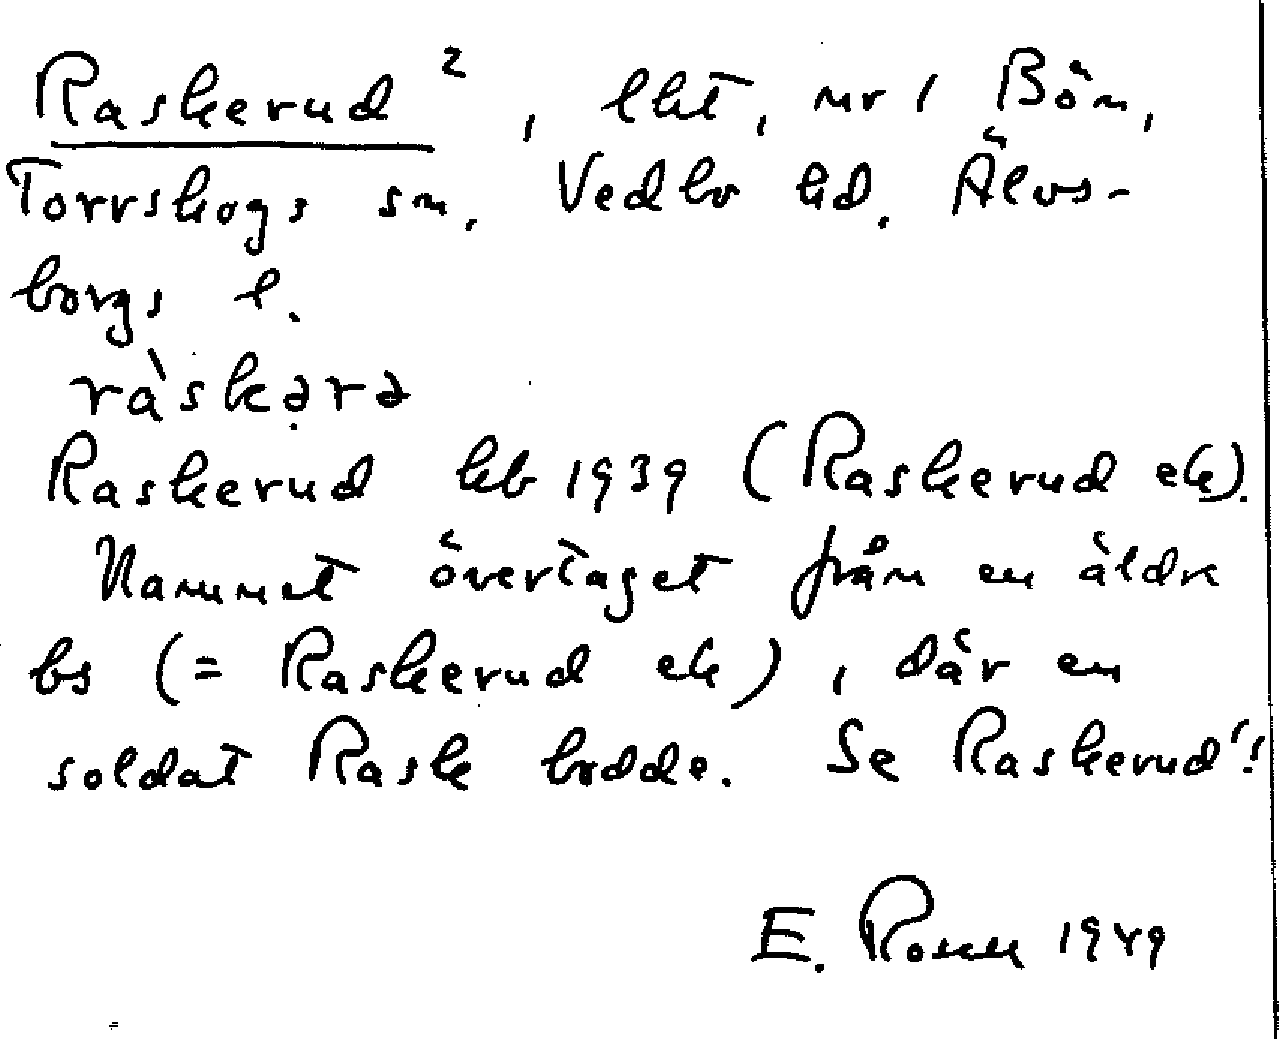 Raskerud², lht, nr 1 Bön,
Torrskogs sn. Vedbo hd. Älvs-
borgs l.
ràskərə
Raskerud kb 1939 (Raskerud ek).
Namnet övertaget från en äldre
bs (= Raskerud ek), där en
soldat Rask bodde. Se Raskerud¹!
E. Rosell 1949